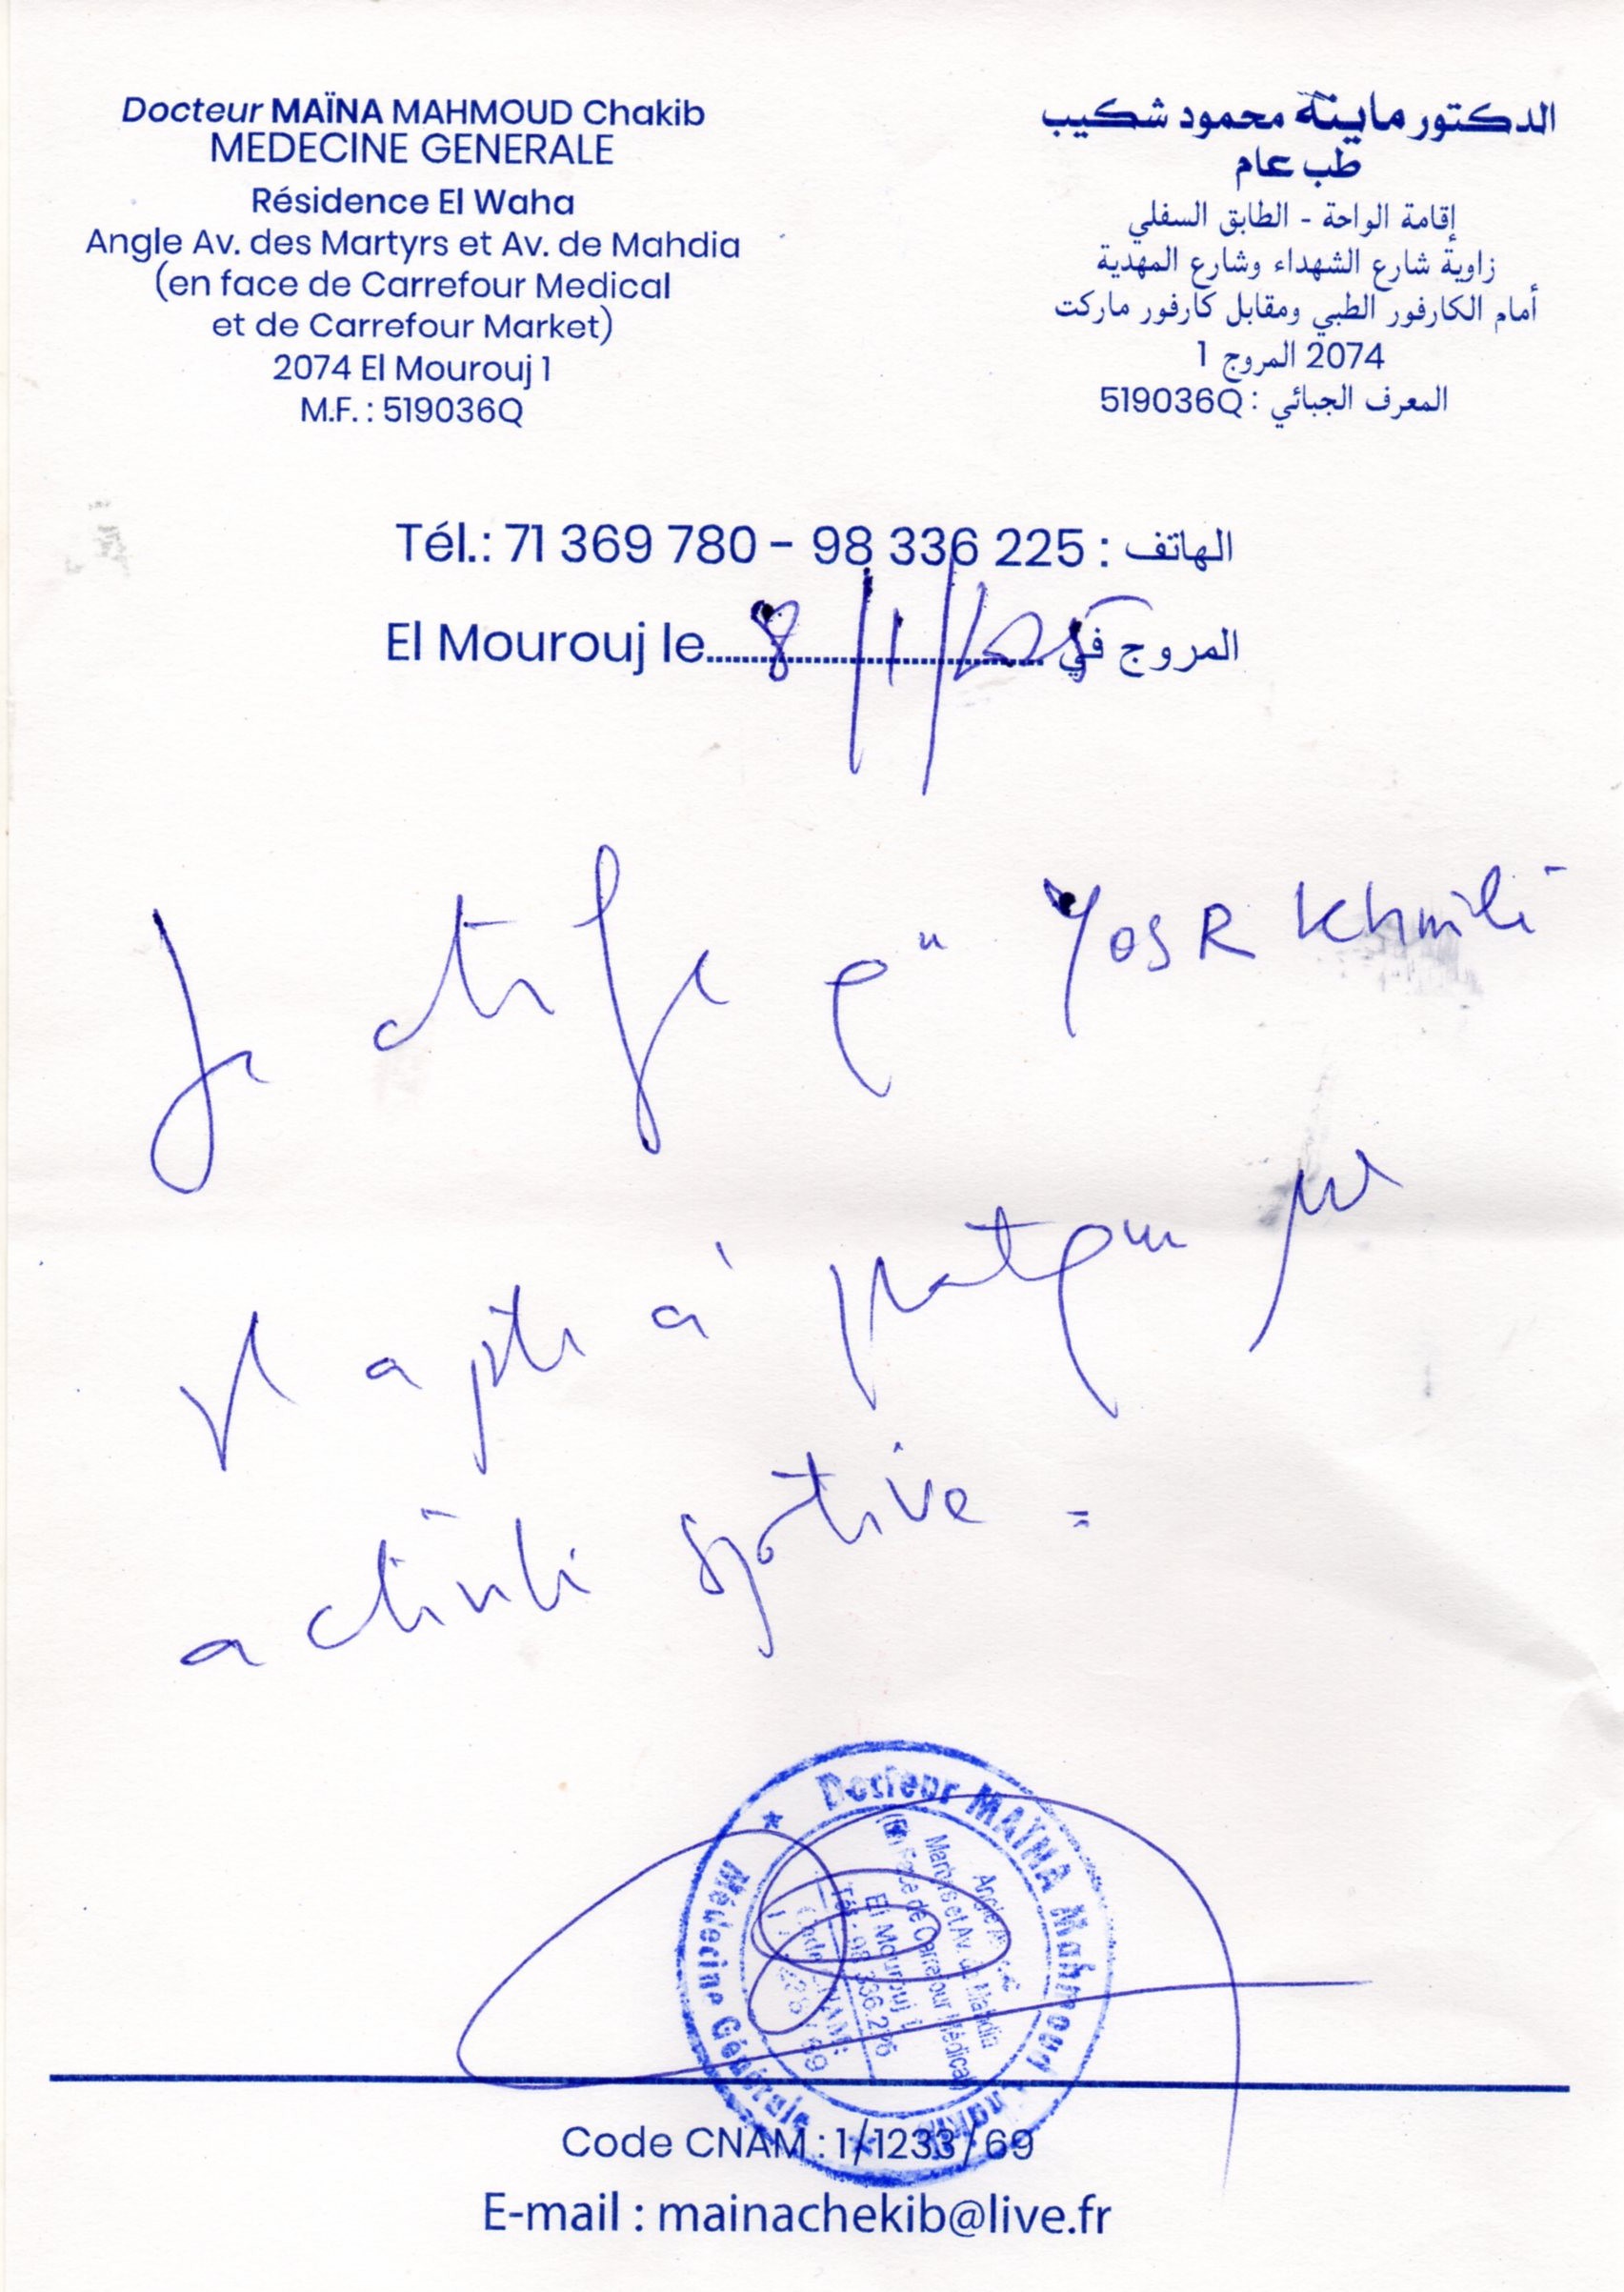 Docteur MAÏNA MAHMOUD Chakib
MEDECINE GENERALE
Résidence El Waha
Angle Av. des Martyrs et Av. de Mahdia
(en face de Carrefour Medical
et de Carrefour Market)
2074 El Mourouj 1
M.F. : 519036Q
الدكتور ماينة محمود شكيب
طب عام
إقامة الواحة - الطابق السفلي
زاوية شارع الشهداء وشارع المهدية
أمام الكارفور الطبي ومقابل كارفور ماركت
2074 المروج 1
المعرف الجبائي : 519036Q
Tél.: 71 369 780 - 98 336 225 : الهاتف
El Mourouj le 8/1/ المروج في
Je certifie que YOSR Khmili
est apte à pratiquer
activité sportive.
Docteur MAÏNA Mahmoud
Médecine Générale
Angle
Martyrs et Av. de Mahdia
(En Face de Carrefour Médical)
El Mourouj 1
Code CNAM : 1/1233/69
E-mail : mainachekib@live.fr